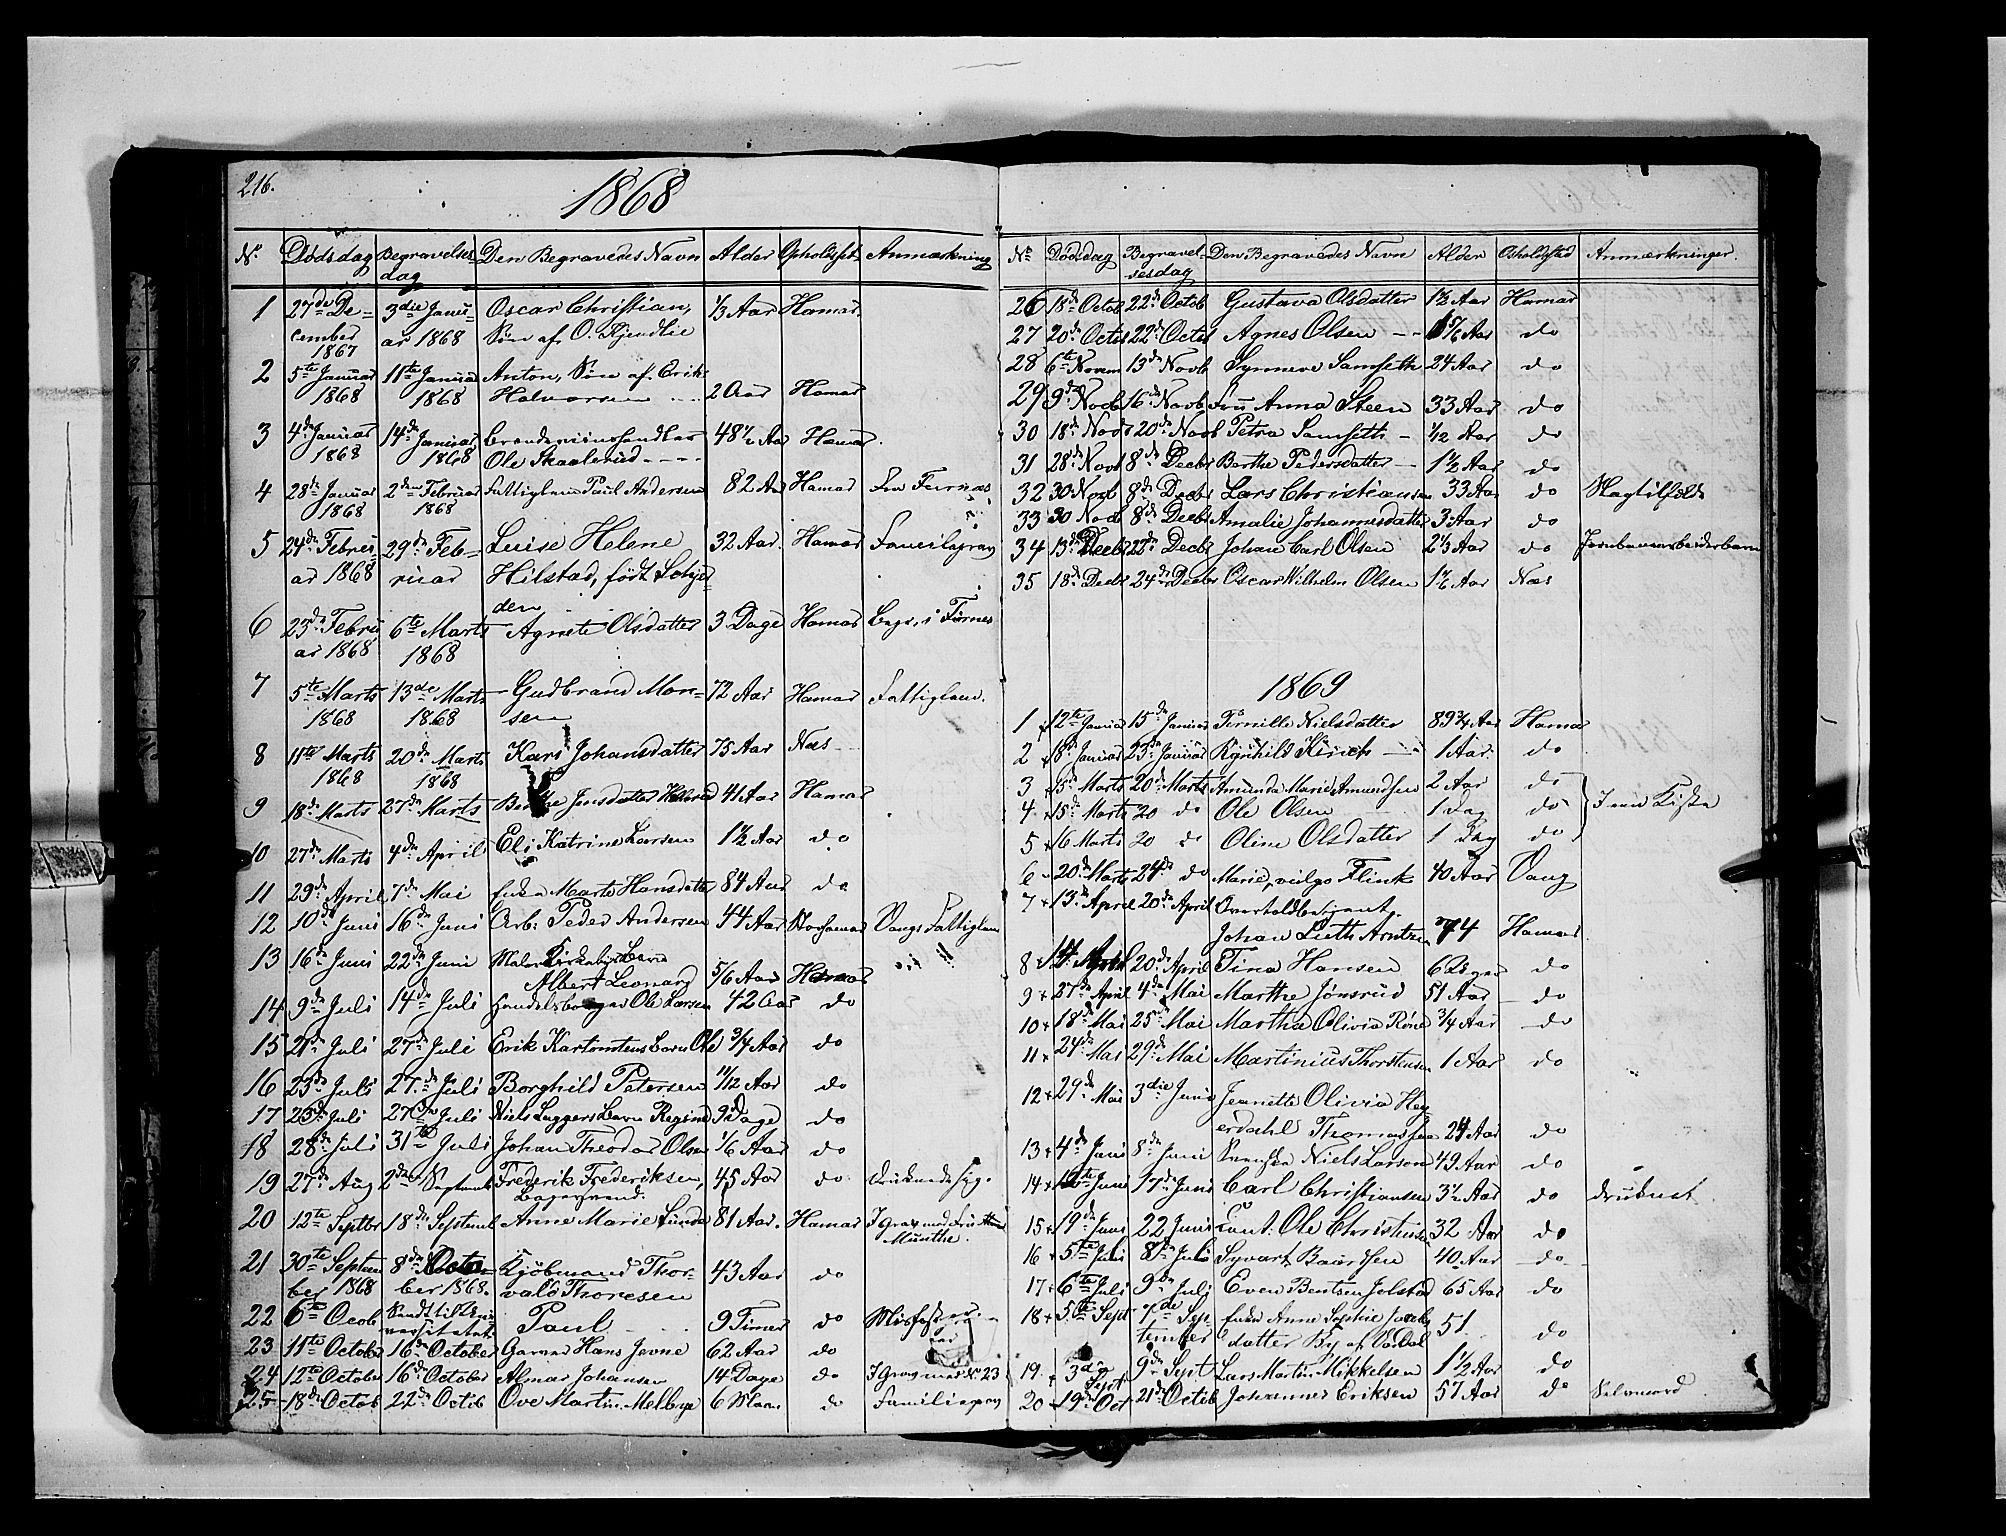 216.
1868
No Dødsdag Begravelses- Den Begravedes Navn Alder Opholdsst. Anmærkning
dag
1 27de De- 3die Janu- Oscar Christian, 1/3 Aar Hamar.
cember ar 1868 Søn af O.
1867
2 5te Januar 11te Januar Anton, Søn af Erik
1868 1868 Halvorsen 2 Aar Hamar
3 4de Januar 14de Januar Brændeviinshandler 48 1/2 Aar Hamar.
1868 1868 Ole Skaalerud
4 28de Januar 2den Februar Fattiglem Paul Andersen 82 Aar Hamar Fra Furnæs
1868 1868
5 24de Febru 29de Feb- Luise Helene 32 Aar. Hamar Familiegrav
ar 1868 ruar Hilstad, født
den
6 23de Febru 6te Marts Agnete Olsdatter 3 Dage Hamar Begr. i Furnes
ar 1868 1868
7 5te Marts 13de Marts Gudbrand Mon- 72 Aar Hamar Fattiglem.
1868 1868 sen
8 11te Marts 20de Marts Kari Johansdatter 75 Aar Næs
1868 1868
9 18de Marts 27de Marts Berthe Jensdatter 41 Aar Hamar
10 27de Marts 4de April Eli Katrine Larsen 1 1/2 Aar do
11 29de April 7de Mai Enken Marte Hansdatter 84 Aar do
12 10de Juni 16de Juni Arb. Peder Andersen 44 Aar Storhamar Vangs Fattiglem
13 16de Juni 22de Juni Maler
Albert Leonard 5/6 Aar Hamar
14 9de Juli 14de Juli Handelsborger Ole Larsen 42 Aar do
15 21de Juli 27de Juli Erik Karstensens Barn Ole 3/4 Aar do
16 23de Juli 27de Juli Borghild Petersen 11/12 Aar do
17 25de Juli 27de Juli Niels Barn Regine 9 Dage do
18 28de Juli 31te Juli Johan Theodor Olsen 1/6 Aar do
19 27de Aug 2den Septemb Frederik Frederiksen, 45 Aar do Druknede sig.
20 12te Septbr 18de Septemb Anne Marie Lunde 81 Aar. Hamar I Grav med Fru
Munthe.
21 30te Septem 8de Octo- Kjøbmand Thor- 43 Aar do
ber 1868 ber 1868. vald Thoresen
22 6te Octob Sendt til Uni- Paul 9 Timer do Misfoster
versitetet
23 11te October 16de October Garver Hans Jevne 62 Aar do
24 12te October 16de October Almar Johansen 14 Dage do I Grav med No 23
25 18de Octob 22de Octob Ove Martin Melbye 6 Maan. do Familiegrav
No Dødsdag Begravel- Den Begravedes Navn Alder Opholdsted Anmærkninger.
sesdag
26 18de Octob 22de Octob Gustava Olsdatter 1 1/2 Aar Hamar
27 20de Octob 22de Octob Agnes Olsen 5/6 Aar do
28 6te Novem 13de Novb Synneve Samseth 24 Aar do
29 9de Novb 16de Novb Fru Anna Steen 33 Aar do
30 18de Novb 20de Novb Petra Samseth 1/12 Aar do
31 28de Novb 8de Decbr Berthe Pedersdatter 1 1/2 Aar do
32 30 Novb 8de Decbr Lars Christiansen 33 Aar do Slagtilfælde
33 30 Novb 8de Decbr Amalie Johannesdatter 3 Aar do
34 13de Decbr 22de Decbr Johan Carl Olsen 2 1/3 Aar do Jernbanearbeiderbarn
35 18de Decbr 24de Decbr Oscar Wilhelm Olsen 1 1/2 Aar Næs
1869
1 12te Januar 15de Januar Pernille Nielsdatter 89 3/4 Aar Hamar
2 18de Januar 23de Januar Ragnhild 1 Aar. do
3 15de Marts 20de Marts Amunda Marie Amundsen 2 Aar do
4 15de Marts 20 do Ole Olsen 1 Dag do I een Kiste
5 16 Marts 20 do Oline Olsdatter 1 Dag do
6 20de Marts 24de do Marie, vulgo Flink 40 Aar Vang
7 13de April 20de April Overtoldbetjent
Johan Luth Arntzen 74 Hamar
8 14 April 20de April Tina Hansen 6 do
9 27de April 4de Mai Marthe Jønsrud 51 Aar do
10 18de Mai 25de Mai Martha Olivia 3/4 Aar do
11 24de Mai 29de Mai Martinius Thorstensen 1 Aar do
12 29de Mai 3die Juni Jeanette Olivia Hey
erdahl Thomassen 24 Aar do
13 4de Juni 8de Juni Svensken Niels Larson 49 Aar do
14 12te Juni 17de Juni Carl Christiansen 3 1/2 Aar do druknet
15 19de Juni 22 Juni Ole Christensen 32 Aar do
16 5te Juli 8de Juli Syvart Baardsen 40 Aar do
17 6te Juli 9de Juli Even Bentsen Jolstad 65 Aar do
18 5te Sept 7de Sep- Enken Anne Sophie Jacobs
tember datter By af Vardal 51 do
19 3die 9de Sept Lars Martin Mikkelsen 1 1/2 Aar do
Sept
20 19de Oct 21de Octob Johannes Eriksen 57 Aar do Selvmord.